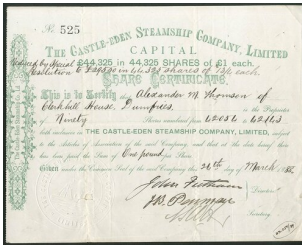 No 525
THE CASTLE-EDEN STEAMSHIP COMPANY, LIMITED
CAPITAL
£44,325 IN 44,325 SHARES OF £1 each.
Reduced by Special
Resolution to in 44,325 shares of each
SHARE CERTIFICATE.
This is to Certify that Alexander M. Thomson of
House, Dumfries. is the Proprietor
of Ninety Shares numbered from 42056 to 42145
both inclusive in THE CASTLE-EDEN STEAMSHIP COMPANY, LIMITED, subject
to the Articles of Association of the said Company and that at the date hereof there
has been paid the Sum of One pound per Share.
Given under the Common Seal of the said Company, the 26th day of March
John
Directors
J.B. Penman
Secretary